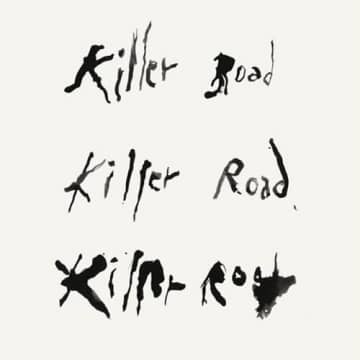 Killer Road
Killer Road.
Killer Road